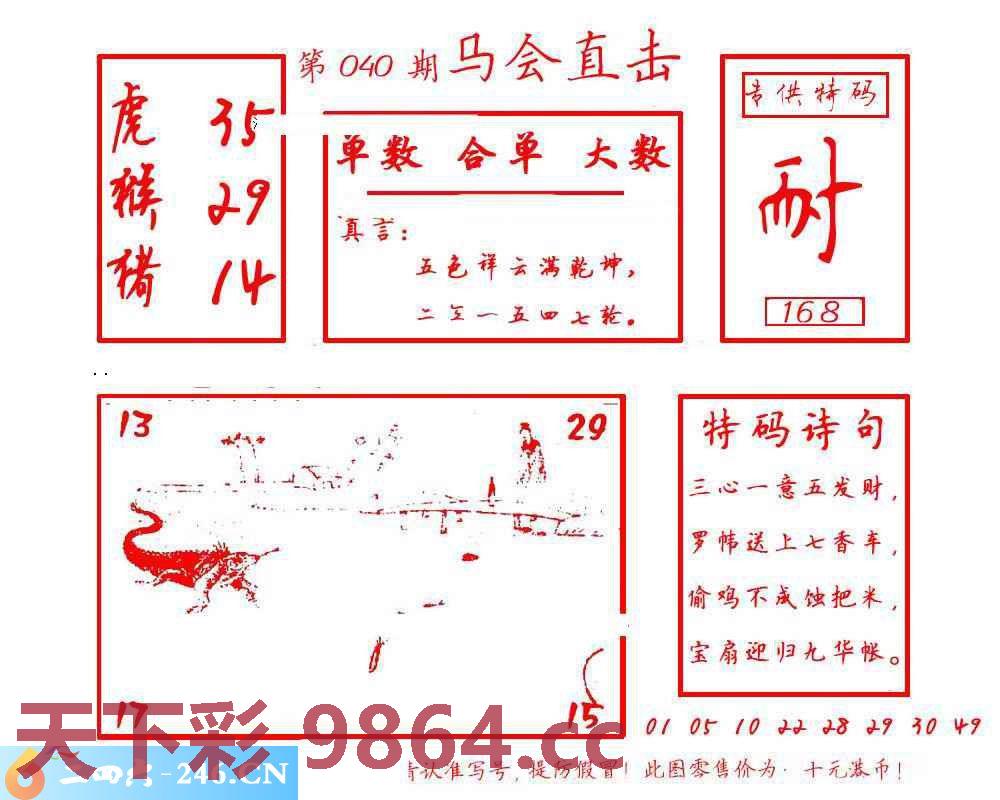 第 040 期 马会直击
虎 35
猴 29
猪 14
单数 合单 大数
真言：
五色祥云满乾坤，
二三一五四七轮。
专供特码
耐
168
13
29
17
15
特码诗句
三心一意五发财，
罗帏送上七香车，
偷鸡不成蚀把米，
宝扇迎归九华帐。
01 05 10 22 28 29 30 49
天下彩 9864.cc
-246.CN
请认准写号，提防假冒！此图零售价为：十元港币！